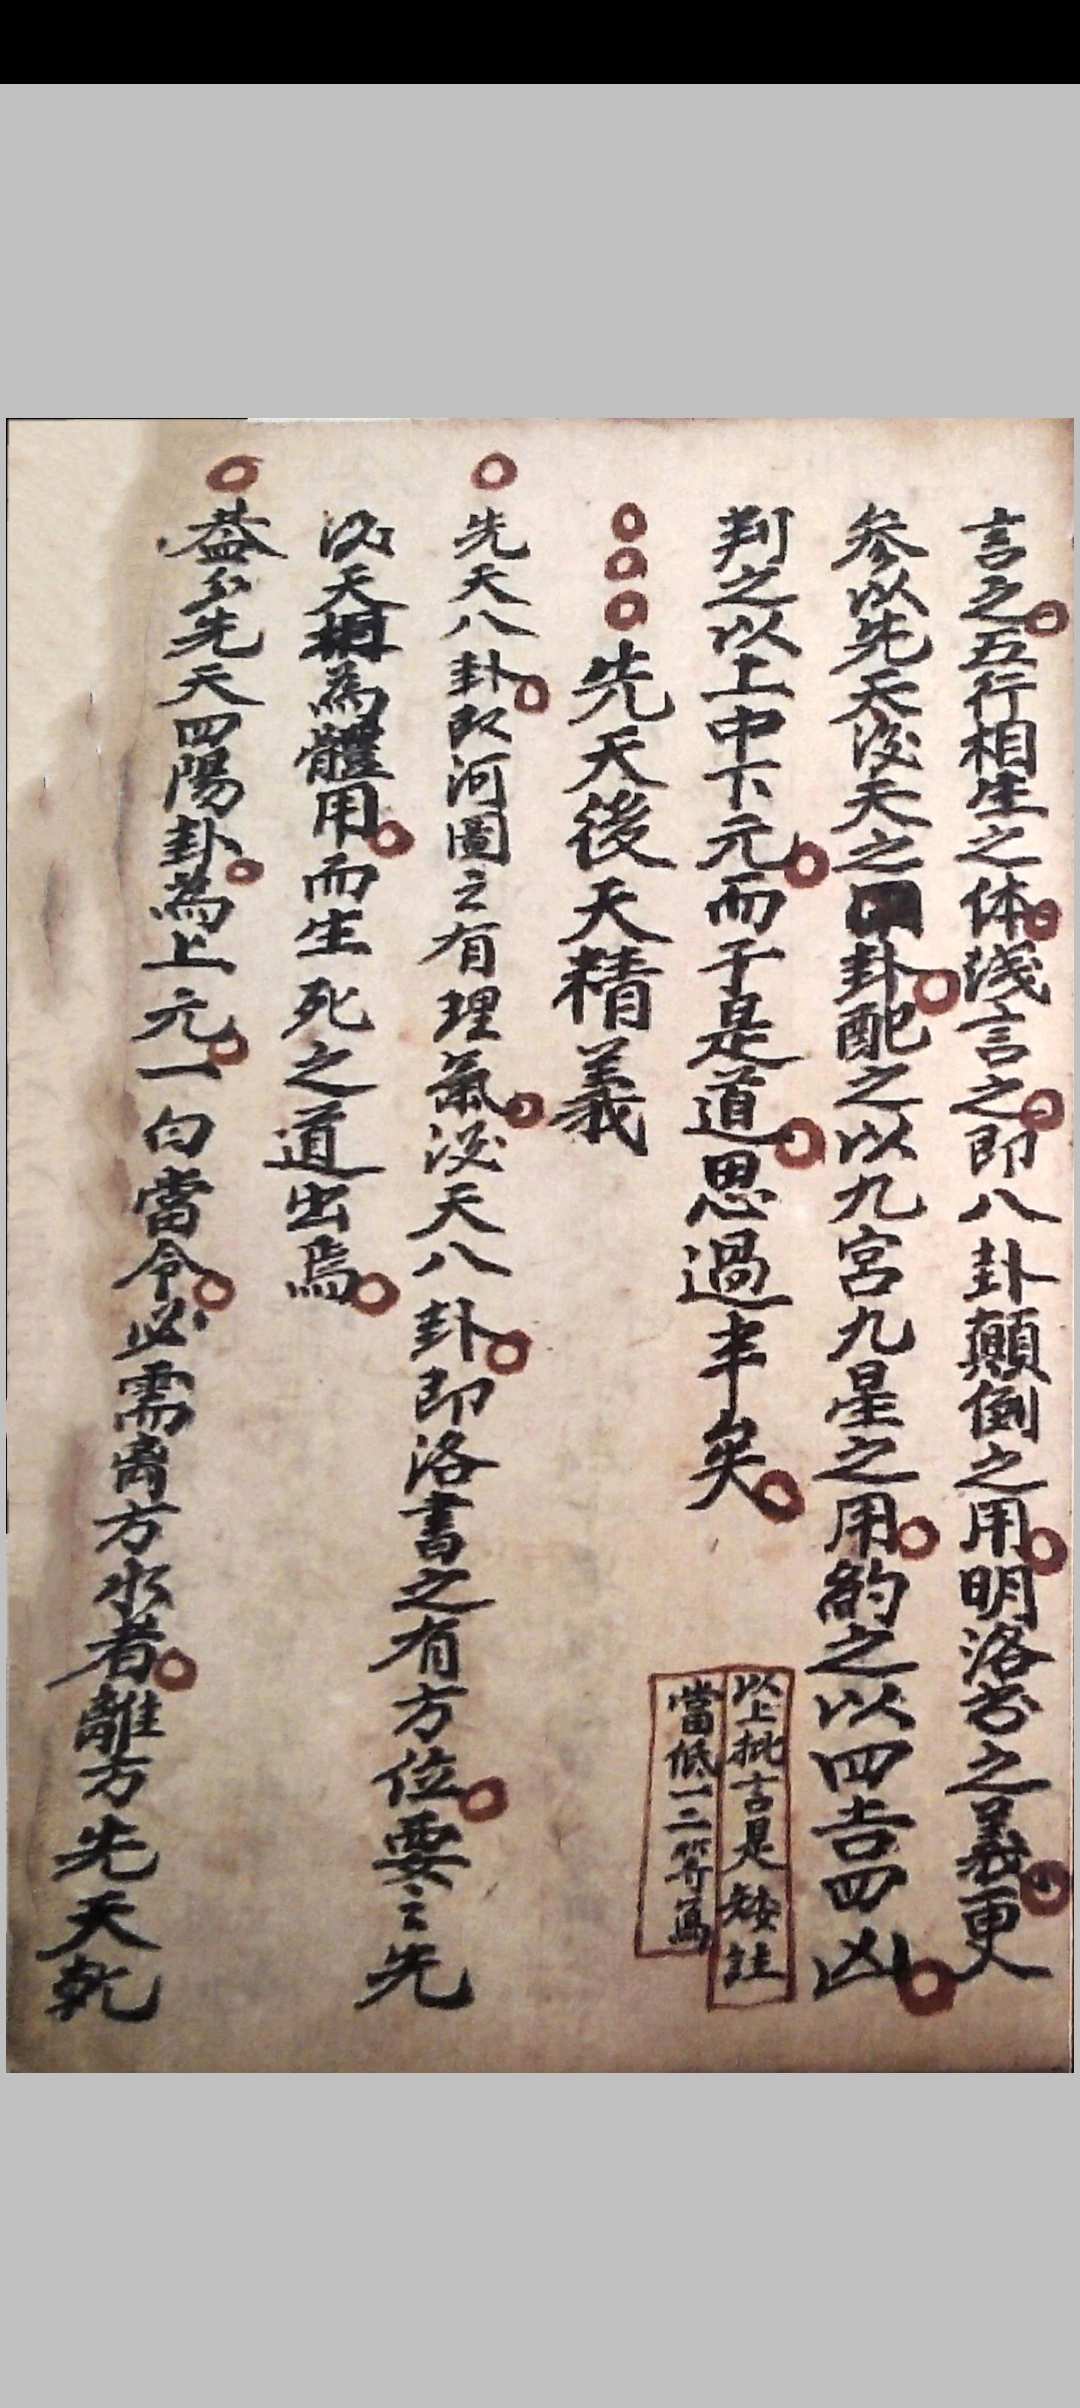 言之五行相生之体浅言之即八卦顛倒之用明洛書之義更
参以先天後天之卦配之以九宮九星之用酌之以四吉四凶
判之以上中下元而于是道思過半矣
以上批言是矮註
當低一二等為
先天後天精義
先天八卦即河圖之有理氣後天八卦即洛書之有方位要之先
後天為體用而生死之道出焉
蓋先天四陽卦為上元一白當令必需离方水者離方先天乾